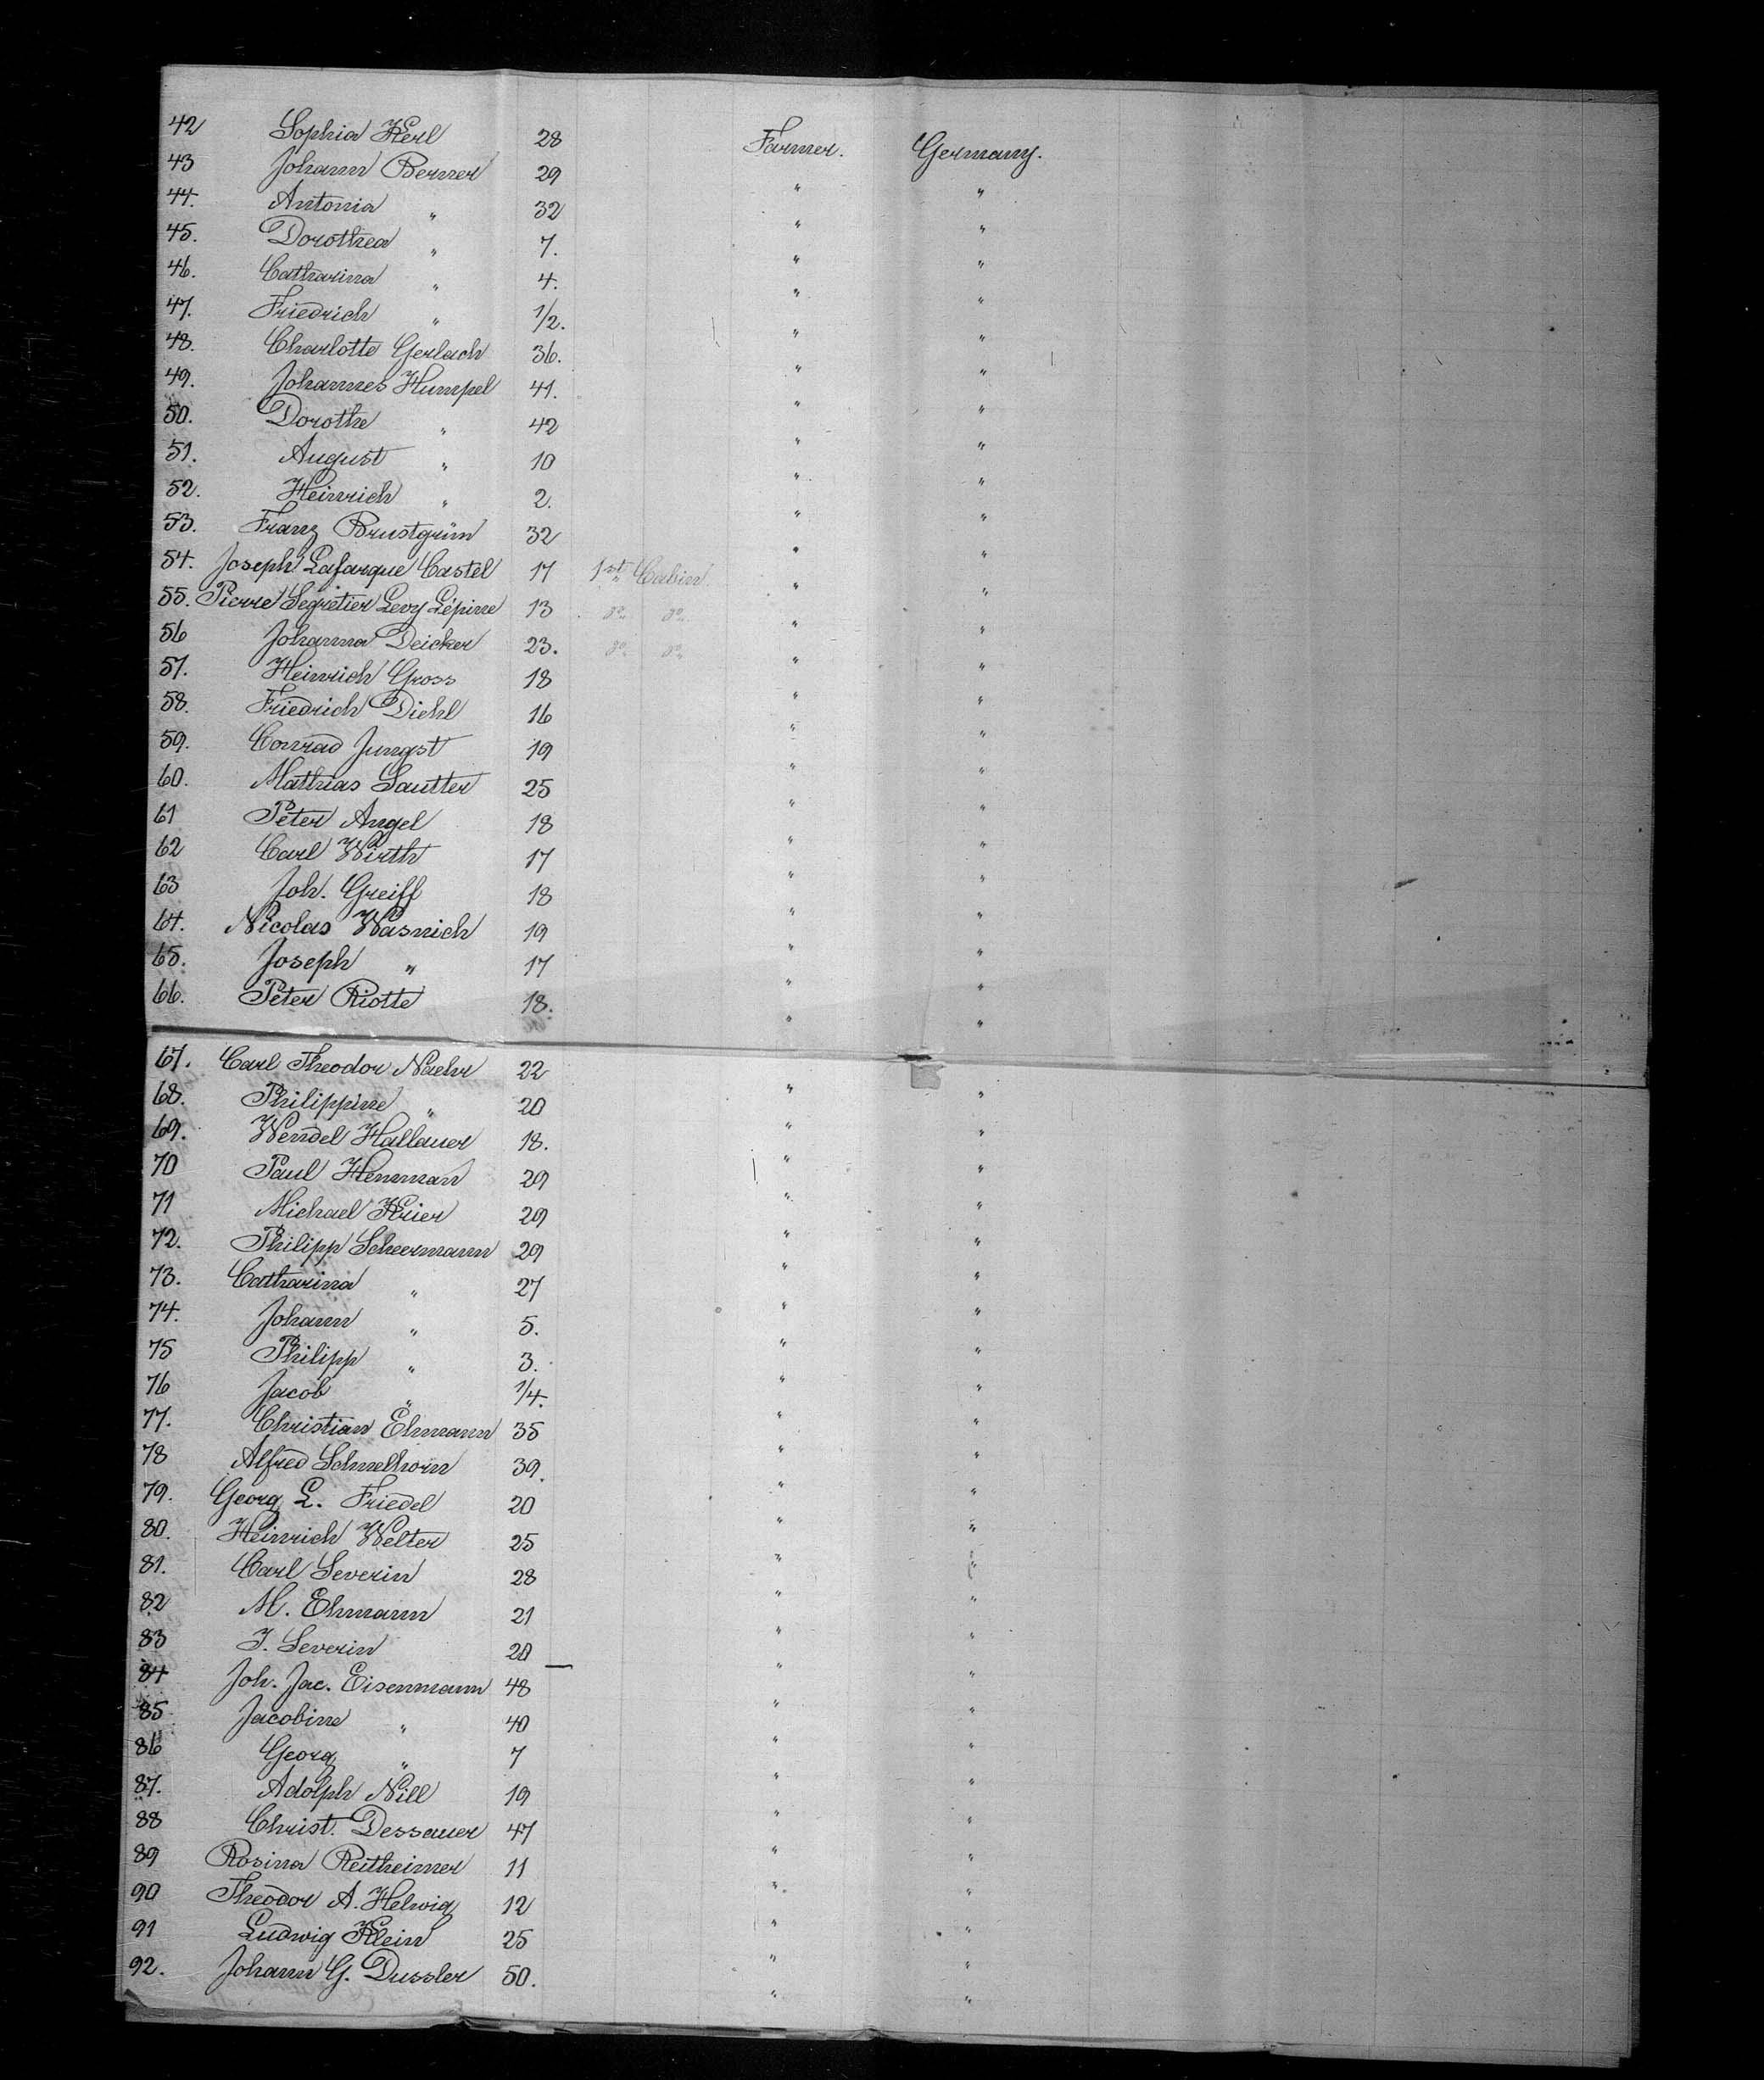 42 Sophia Kerl 28 Farmer. Germany.
43 Johann Berner 29 " "
44. Antonia " 32 " "
45. Dorothea " 7. " "
46. Catharina " 4. " "
47. Friedrich " 1/2. " "
48. Charlotte Gerlach 36. " "
49. Johannes Humpel 41. " "
50. Dorothe " 42 " "
51. August " 10 " "
52. Heinrich " 2. " "
53. Franz Brustgrün 32 " "
54. Joseph Lafargue Castel 17 1st Cabin " "
55. Pierre Segretier Levy Lépine 13 do do " "
56 Johanna Deicker 23. do do " "
57. Heinrich Gross 18 " "
58. Friedrich Diehl 16 " "
59. Conrad Jungst 19 " "
60. Mathias Sautter 25 " "
61 Peter Angel 18 " "
62 Carl Wirth 17 " "
63 Joh. Greiff 18 " "
64. Nicolas Wasnich 19 " "
65. Joseph " 17 " "
66. Peter Riotte 18. " "
67. Carl Theodor Naehr 22 " "
68. Philippine " 20 " "
69. Wendel Hallauer 18. " "
70 Paul Henman 29 " "
71 Michael Krier 29 " "
72. Philipp Scheermann 29 " "
73. Catharina " 27 " "
74. Johann " 5. " "
75 Philipp " 3. " "
76 Jacob " 1/4. " "
77. Christian Ehmann 35 " "
78 Alfred Schnelhorn 39. " "
79. Georg L. Friedel 20 " "
80. Heinrich Welter 25 " "
81. Carl Severin 28 " "
82 M. Ehmann 21 " "
83 J. Severin 20 " "
84 Joh. Jac. Eisenmann 48 " "
85 Jacobine " 40 " "
86 Georg " 7 " "
87. Adolph Nill 19 " "
88 Christ. Dessauer 47 " "
89 Rosina Reitheimer 11 " "
90 Theodor A. Helwig 12 " "
91 Ludwig Klein 25 " "
92. Johann G. Dussler 50. " "